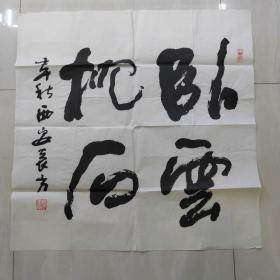 卧雲
枕石
辛秋西安長方